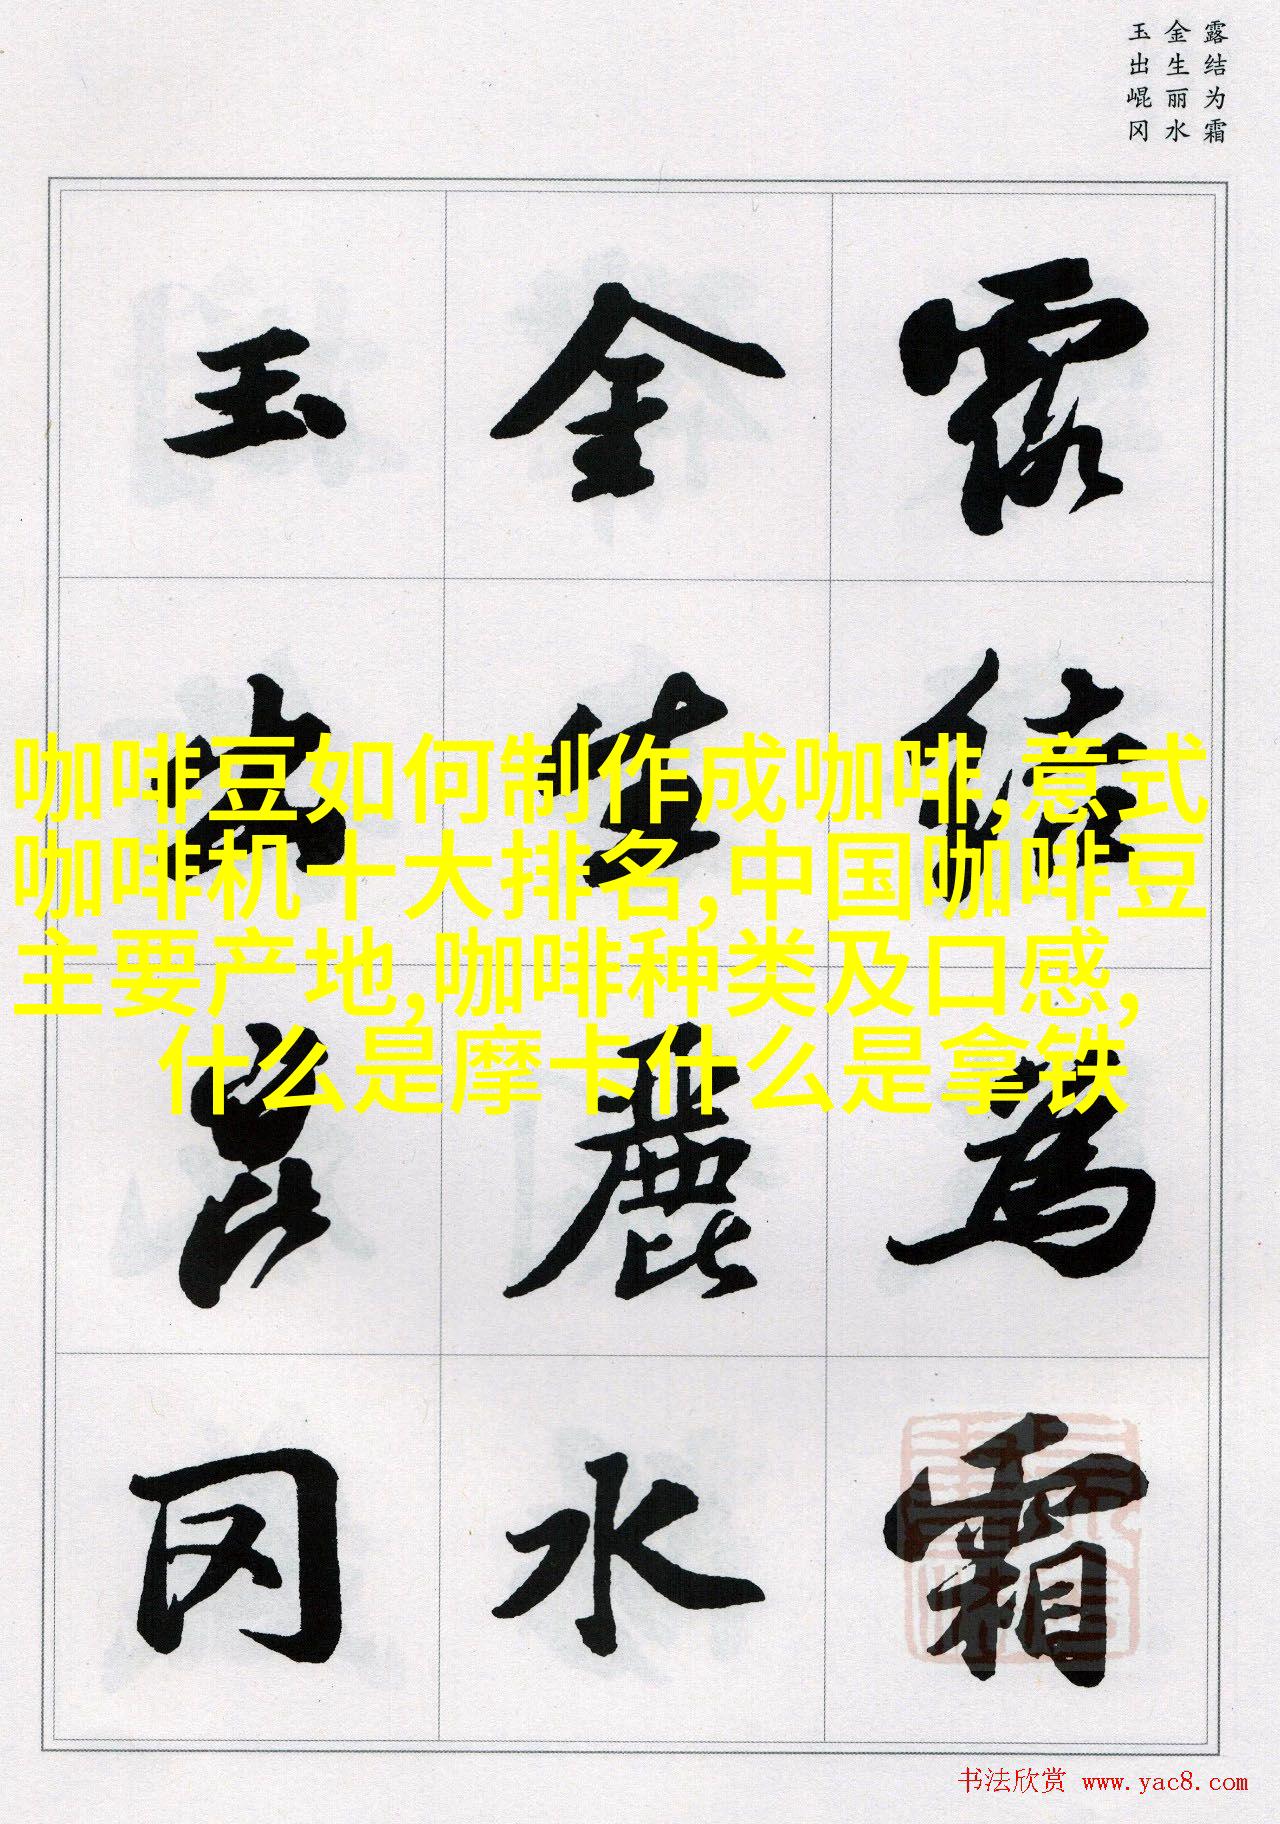 露结为霜
金生丽水
玉出崐冈
露結為霜
金生麗水
玉出崑冈
咖啡豆如何制作成咖啡,意式
咖啡机十大排名,中国咖啡豆
主要产地,咖啡种类及口感,
什么是摩卡什么是拿铁
书法欣赏 www.yac8.com